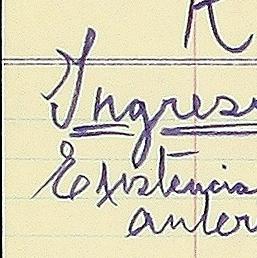 R
Ingres
Existencia
anter